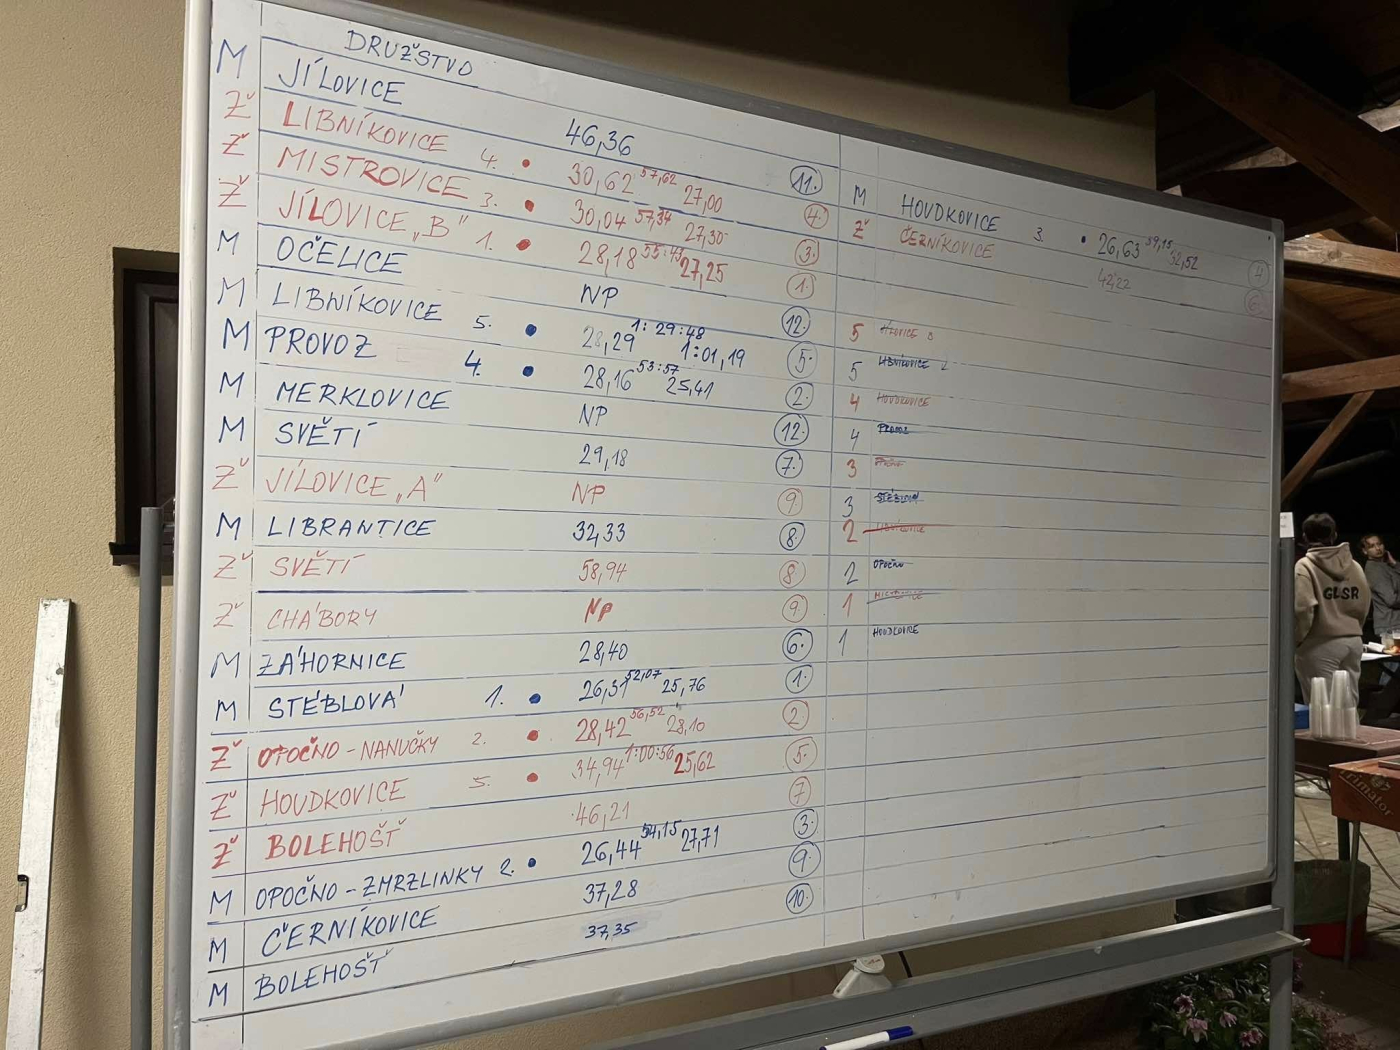 DRUŽSTVO
M JÍLOVICE 46,36 11.
Ž LIBNÍKOVICE 4. • 30,62 57,62 27,00 4.
Ž MISTROVICE 3. • 30,04 57,34 27,30 3.
Ž JÍLOVICE „B" 1. • 28,18 55:43 27,25 1.
M OČELICE NP 12.
M LIBNÍKOVICE 5. • 28,29 1:29:48 1:01,19 5.
M PROVOZ 4. • 28,16 53:57 25,41 2.
M MERKLOVICE NP 12.
M SVĚTÍ 29,18 7.
Ž JÍLOVICE „A" NP 9.
M LIBRANTICE 32,33 8.
Ž SVĚTÍ 58,94 8.
Ž CHÁBORY NP 9.
M ZÁHORNICE 28,40 6.
M STÉBLOVÁ 1. • 26,31 52,07 25,76 1.
Ž OPOČNO - NANUČKY 2. • 28,42 56,52 28,10 2.
Ž HOUDKOVICE 5. • 34,94 1:00:56 25,62 5.
Ž BOLEHOŠŤ 46,21 7
M OPOČNO - ZMRZLINKY 2. • 26,44 54,15 27,71 3.
M ČERNÍKOVICE 37,28 9.
M BOLEHOŠŤ 37,35 10.
M HOUDKOVICE 3. • 26,63 59,15 32,52 4
Ž ČERNÍKOVICE 42,22 6.
5 JÍLOVICE B
5 LIBNÍKOVICE
4 HOUDKOVICE
4 PROVOZ
3
3 STÉBLOVÁ
2 LIBNÍKOVICE
2 OPOČNO
1 MISTROVICE
1 HOUDKOVICE
GLSR